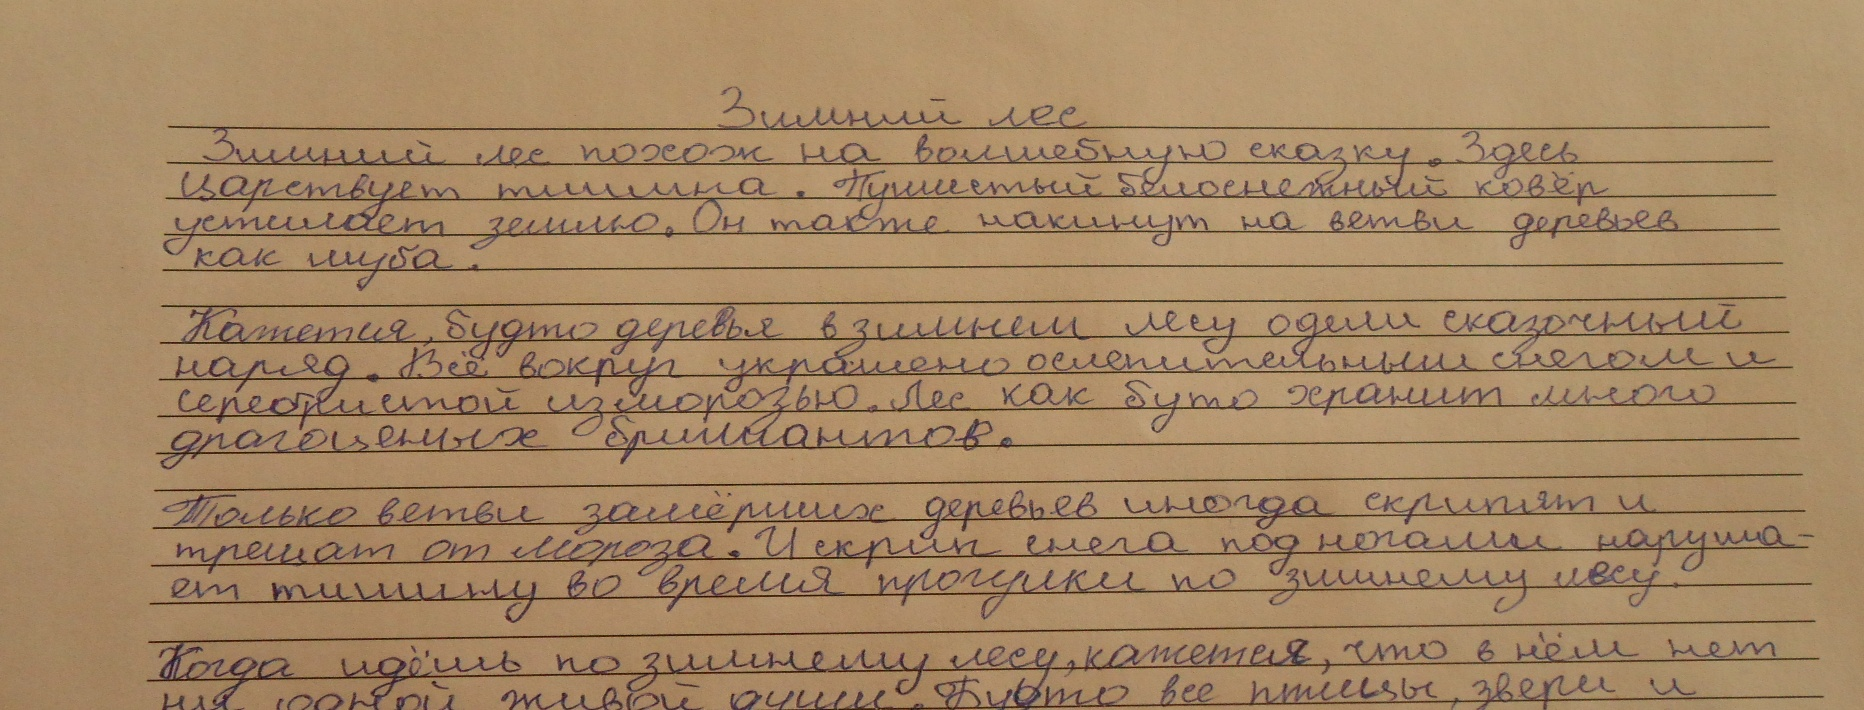 Зимний лес
Зимний лес похож на волшебную сказку. Здесь
царствует тишина. Пушистый белоснежный ковёр
устилает землю. Он также накинут на ветви деревьев
как шуба.
Кажется, будто деревья в зимнем лесу одели сказочный
наряд. Всё вокруг украшено ослепительным снегом и
серебристой изморозью. Лес как буто хранит много
драгоценых бриллиантов.
Только ветви замёрших деревьев иногда скрипят и
трещат от мороза. И скрип снега под ногами наруша-
ет тишину во время прогулки по зимнему лесу.
Когда идёшь по зимнему лесу, кажется, что в нём нет
ни одной живой души. Будто все птицы, звери и